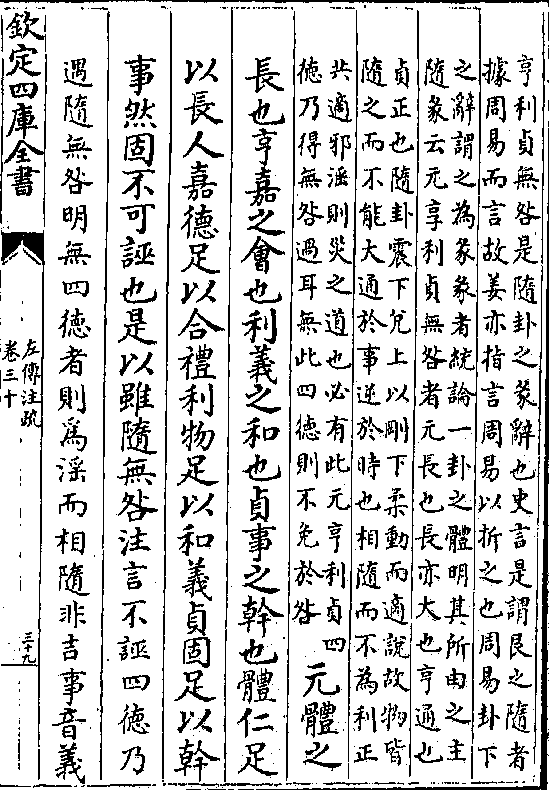 亨利貞無咎是隨卦之彖辭也史言是謂艮之隨者
據周易而言故姜亦指言周易以折之也周易卦下
之辭謂之為彖彖者統論一卦之體明其所由之主
隨彖云元亨利貞無咎者元長也長亦大也亨通也
貞正也隨卦震下兌上以剛下柔動而適說故物皆
隨之而不能大通於事逆於時也相隨而不為利正
共適邪淫則災之道也必有此元亨利貞四
德乃得無咎過耳無此四德則不免於咎
元體之
長也亨嘉之會也利義之和也貞事之幹也體仁足
以長人嘉德足以合禮利物足以和義貞固足以幹
事然固不可誣也是以雖隨無咎注言不誣四德乃
遇隨無咎明無四德者則爲淫而相隨非吉事音義
欽定四庫全書
左傳注疏
卷三十
三十九